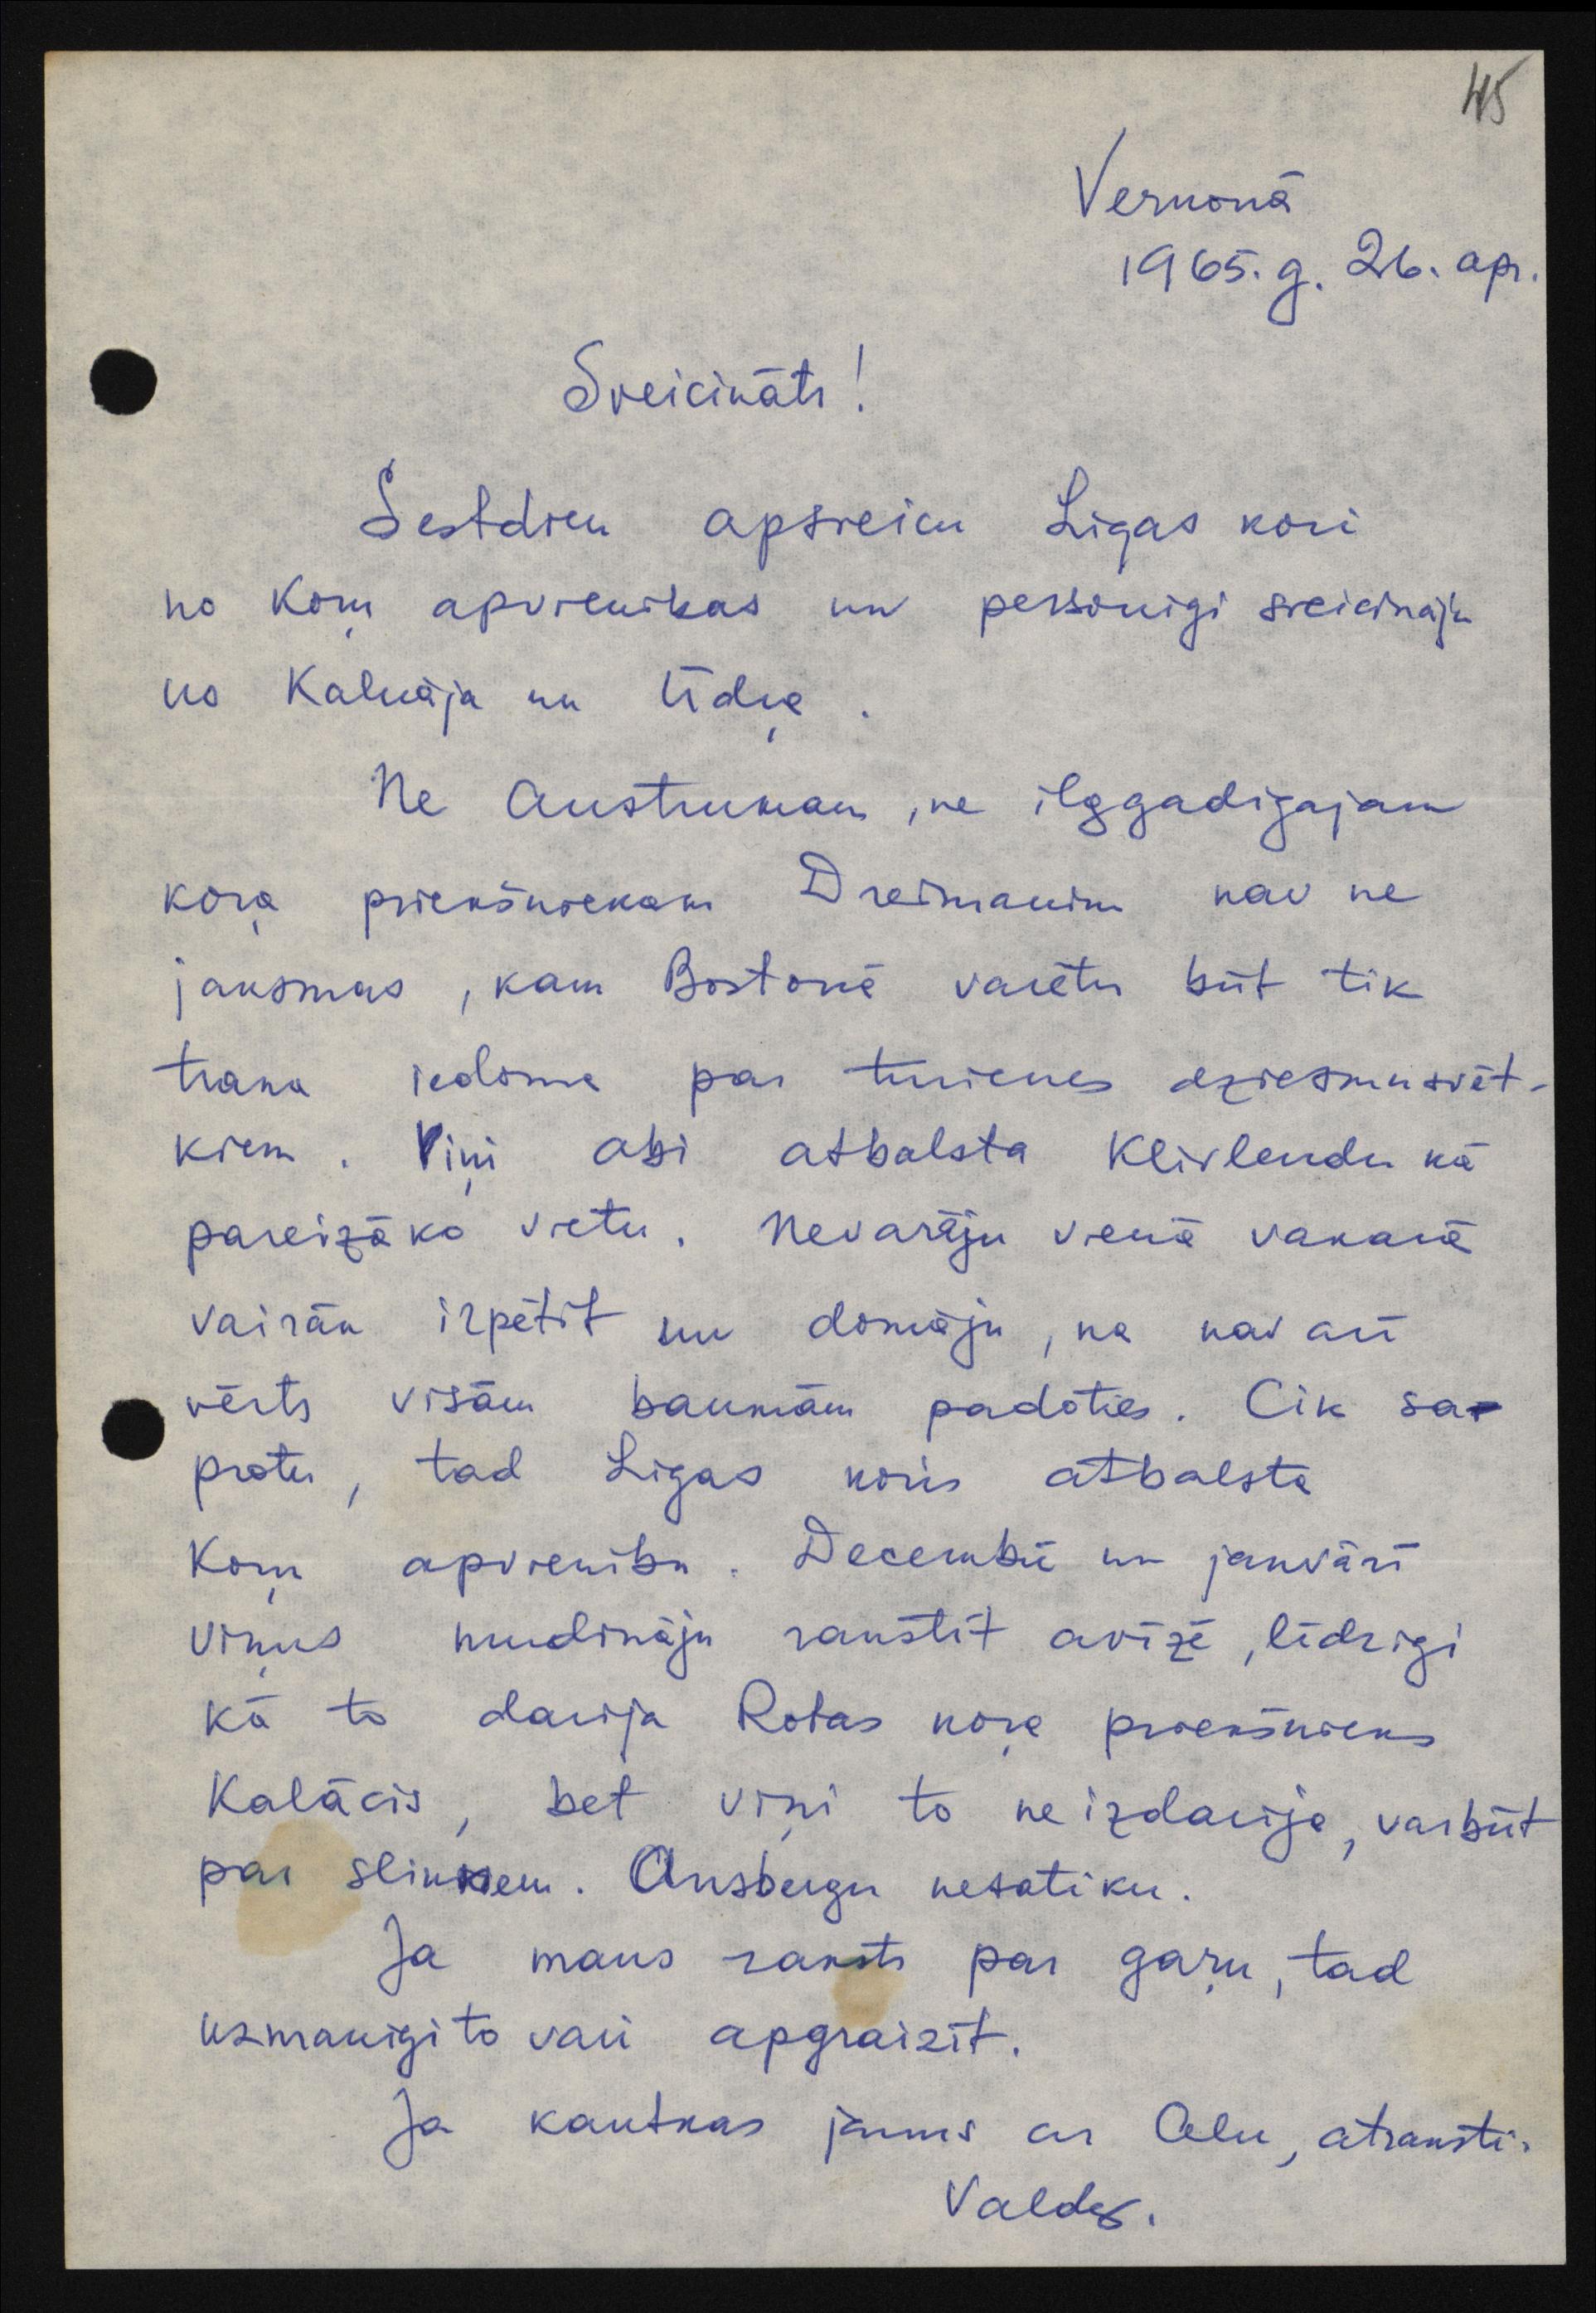 45
Vernonā
1965. g. 26. apr.
Sveicināts!
Sestdien apsveicu Ligas kori
no Kom̦ apvienības un personigi sveicināju
no Kalnāja un Ūdŗa.
Ne Austrumam, ne ilggadigajam
koŗa priekšniekam Dreimanim nav ne
jausmas, kam Bostonā varētu būt tik
traka iedoma par turienes dziesmusvēt-
kiem. Viņi abi atbalsta Klivlendu kā
pareizāko vietu. Nevarēju vienā vakarā
vairāk izpētīt un domāju, ka nav arī
vērts visām baumām padoties. Cik sa-
protu, tad Ligas koris atbalsta
Kom̦ apvienību. Decembrī un janvārī
viņus mudināju rakstīt avīzē, līdzigi
kā to darija Rotas koŗa priekšnieks
Kalācis, bet viņi to neizdarija, varbūt
par slinkiem. Ansbergu nesatiku.
Ja mans raksts par gaŗu, tad
uzmanigi to vari apgraizīt.
Ja kautkas jauns ar Alu, atraksti.
Valdis.